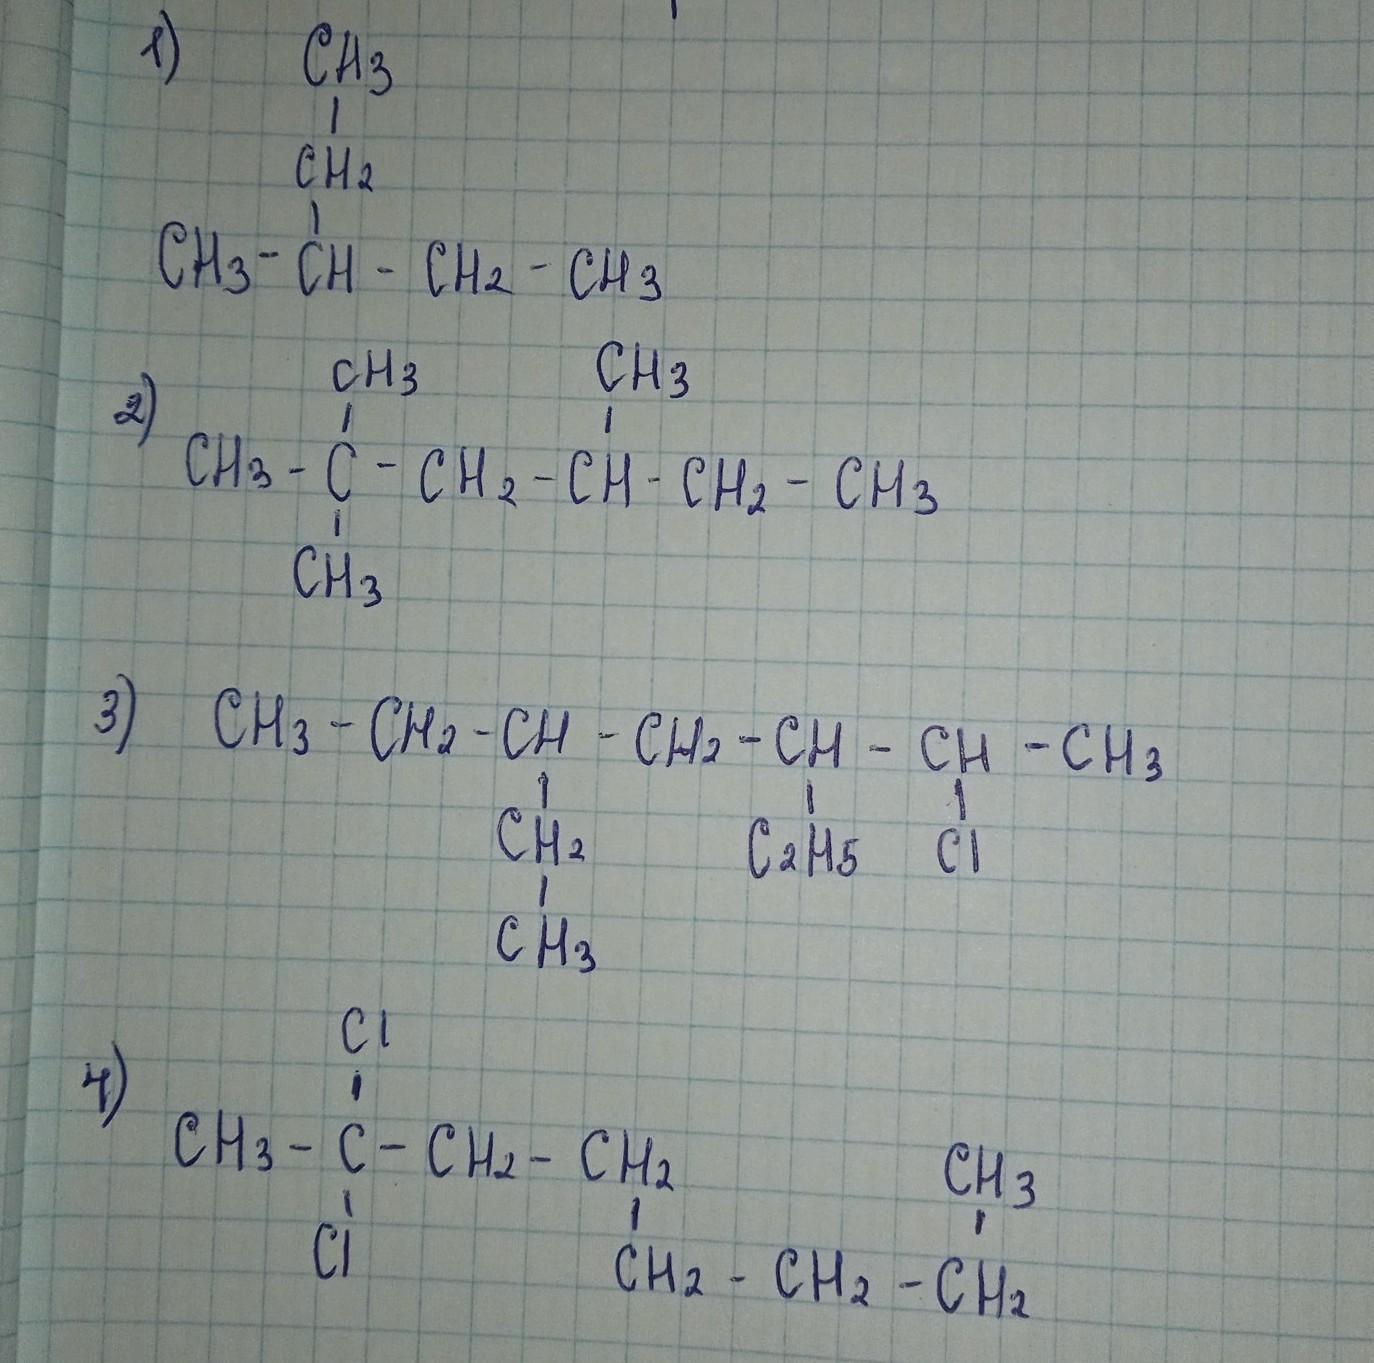 1) CH3
CH2
CH3 - CH - CH2 - CH3
CH3 CH3
2) CH3 - C - CH2 - CH - CH2 - CH3
CH3
3) CH3 - CH2 - CH - CH2 - CH - CH - CH3
CH2 C2H5 Cl
CH3
Cl
4) CH3 - C - CH2 - CH2 CH3
Cl CH2 - CH2 - CH2